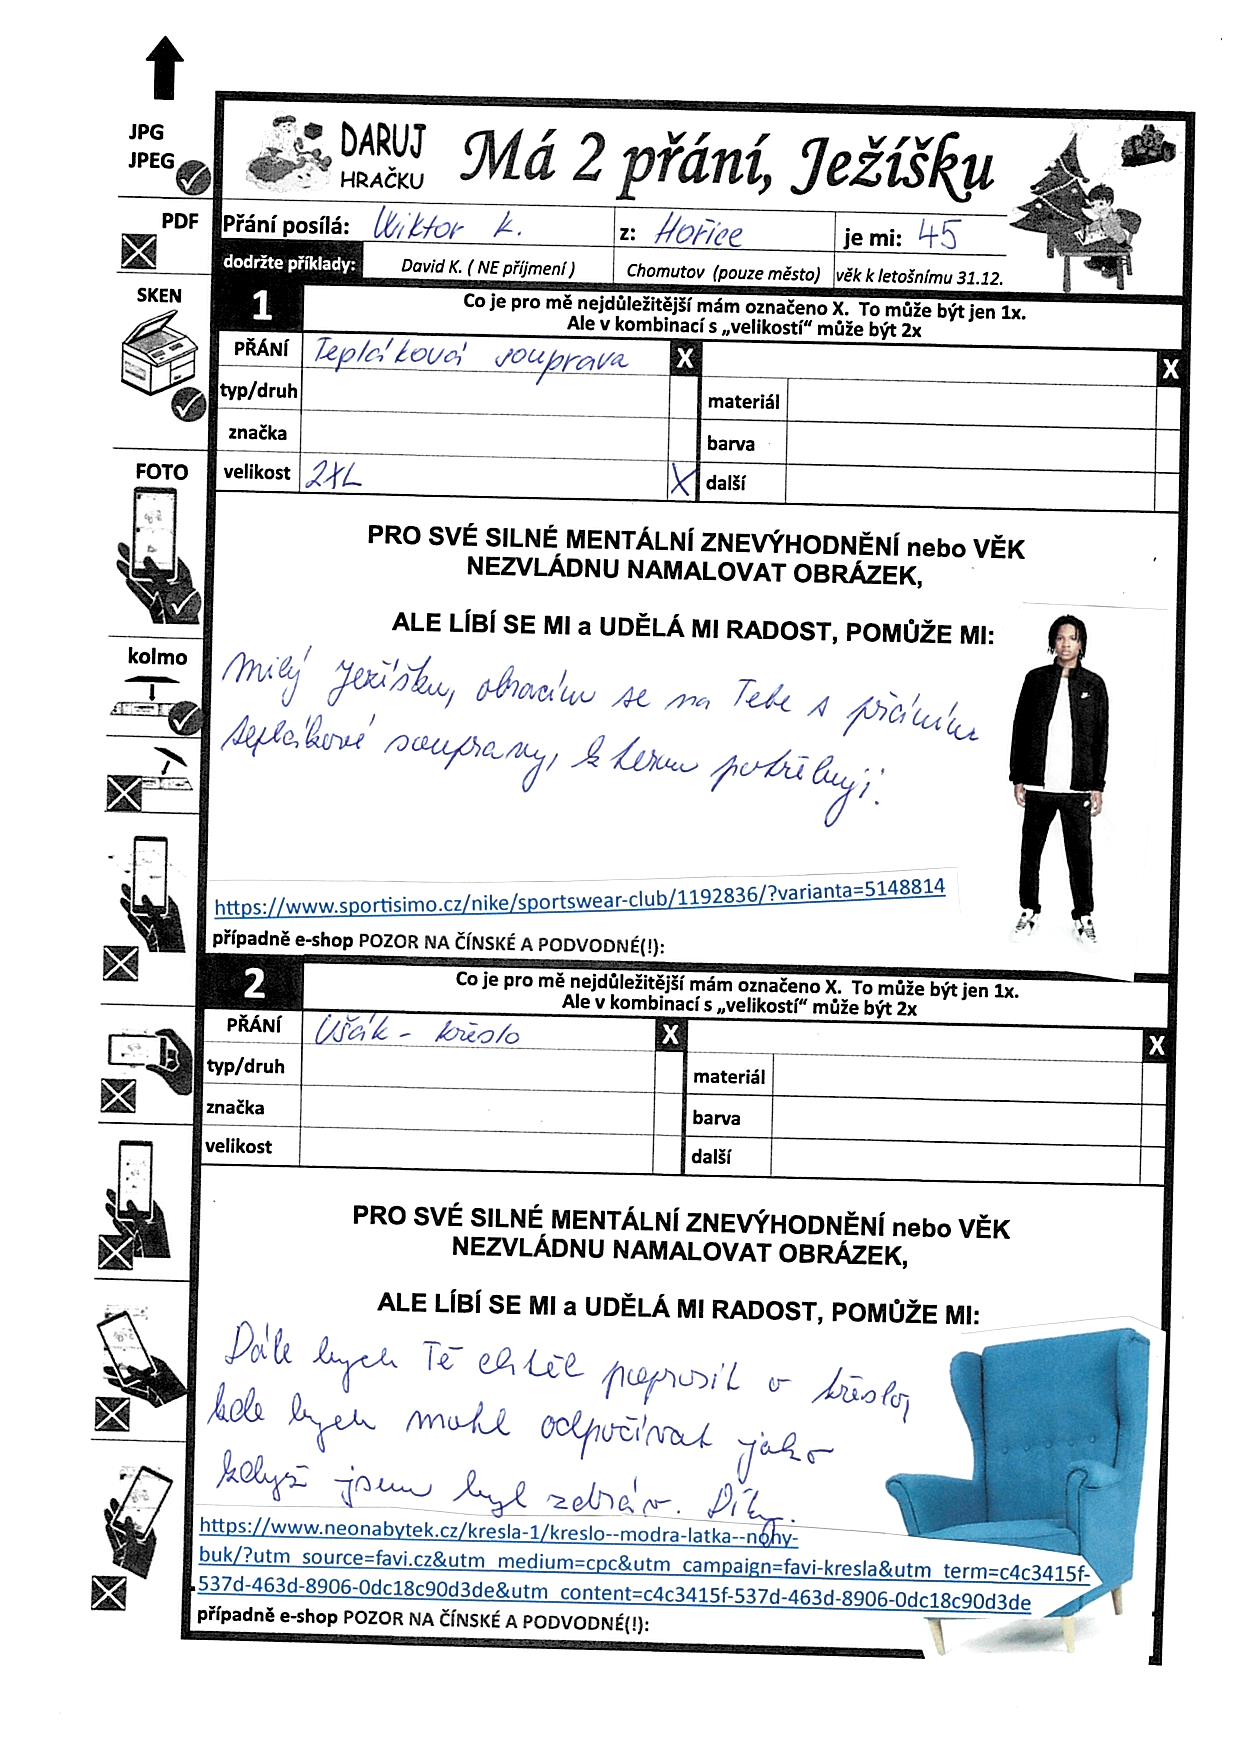 JPG
JPEG
PDF
SKEN
FOTO
kolmo
DARUJ
HRAČKU
Má 2 přání, Ježíšku
Přání posílá: Wiktor K. z: Hořice je mi: 45
dodržte příklady: David K. ( NE příjmení ) Chomutov (pouze město) věk k letošnímu 31.12.
1 Co je pro mě nejdůležitější mám označeno X. To může být jen 1x.
Ale v kombinací s „velikostí“ může být 2x
PŘÁNÍ Tepláková souprava X X
typ/druh materiál
značka barva
velikost 2XL X další
PRO SVÉ SILNÉ MENTÁLNÍ ZNEVÝHODNĚNÍ nebo VĚK
NEZVLÁDNU NAMALOVAT OBRÁZEK,
ALE LÍBÍ SE MI a UDĚLÁ MI RADOST, POMŮŽE MI:
Milý Ježíšku, obracím se na Tebe s přáním
teplákové soupravy, kterou potřebuji.
https://www.sportisimo.cz/nike/sportswear-club/1192836/?varianta=5148814
případně e-shop POZOR NA ČÍNSKÉ A PODVODNÉ(!):
2 Co je pro mě nejdůležitější mám označeno X. To může být jen 1x.
Ale v kombinací s „velikostí“ může být 2x
PŘÁNÍ Ušák - křeslo X X
typ/druh materiál
značka barva
velikost další
PRO SVÉ SILNÉ MENTÁLNÍ ZNEVÝHODNĚNÍ nebo VĚK
NEZVLÁDNU NAMALOVAT OBRÁZEK,
ALE LÍBÍ SE MI a UDĚLÁ MI RADOST, POMŮŽE MI:
Dále bych Tě chtěl poprosit o křeslo,
kde bych mohl odpočívat jako
když jsem byl zdráv. Díky.
https://www.neonabytek.cz/kresla-1/kreslo--modra-latka--nohy-
buk/?utm_source=favi.cz&utm_medium=cpc&utm_campaign=favi-kresla&utm_term=c4c3415f-
537d-463d-8906-0dc18c90d3de&utm_content=c4c3415f-537d-463d-8906-0dc18c90d3de
případně e-shop POZOR NA ČÍNSKÉ A PODVODNÉ(!):